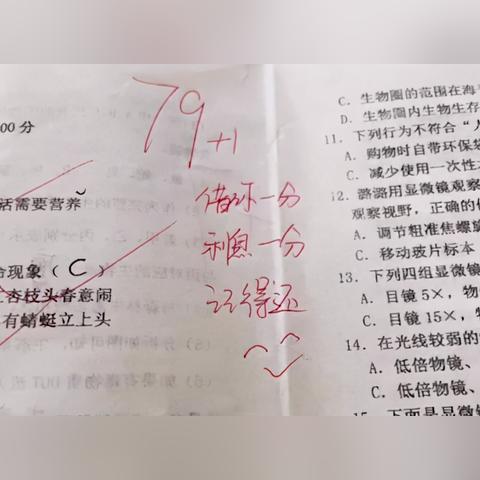 00分
活需要营养
命现象（C）
工杏枝头春意闹
有蜻蜓立上头
79+1
借你一分
利息一分
记得还
C. 生物圈的范围在海平
D. 生物圈内生物生存
11. 下列行为不符合“人
A. 购物时自带环保袋
C. 减少使用一次性
12. 潞潞用显微镜观察
观察视野，正确的
A. 调节粗准焦螺旋
C. 移动玻片标本
13. 下列四组显微镜
A. 目镜5×，物
C. 目镜15×，物
14. 在光线较弱的
A. 低倍物镜、
C. 低倍物镜、
15. 下面是显微镜